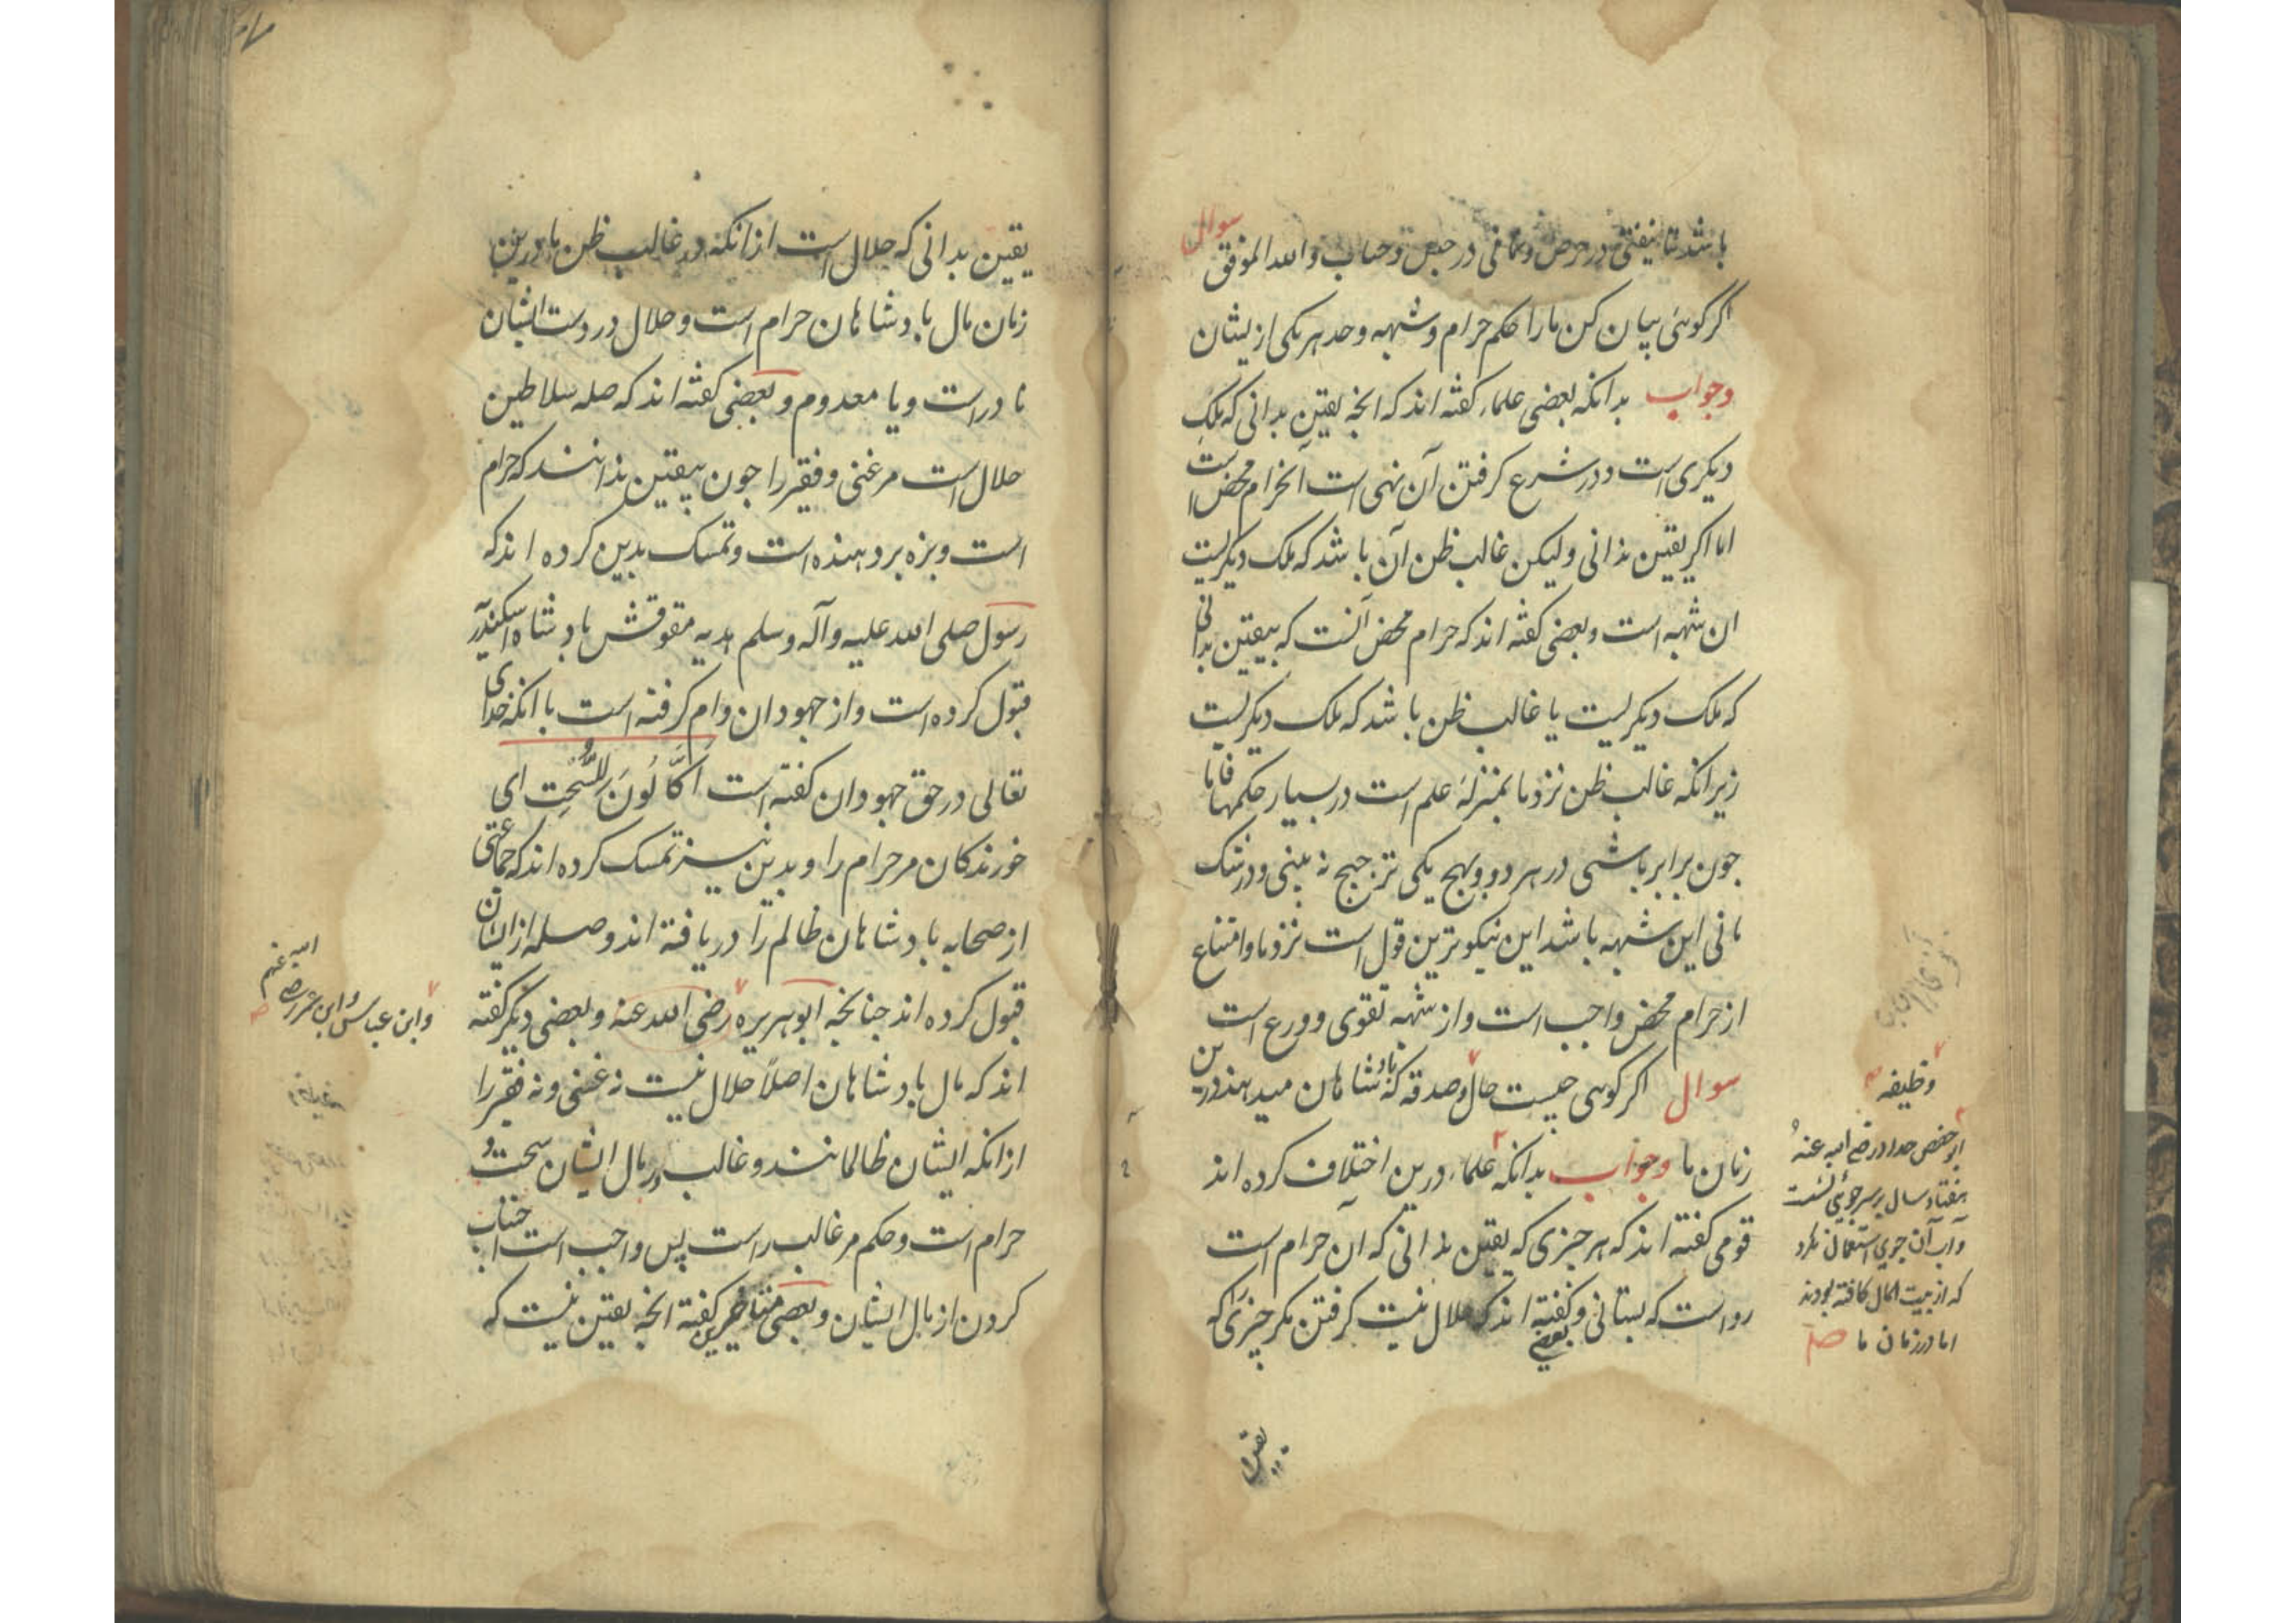 باشد تا نیفتی در حرص و نمانی در حبس و حساب والله الموفق سوال
اکر کوئی بیان کن ما را حکم حرام و شبهه و حد هر یکی ازیشان
وجواب بدانکه بعضی علماء کفته اند که انچه یقین بدانی که ملک
دیکری است و در شرع کرفتن آن نهی است آن حرام محض است
اما اکر یقین ندانی ولیکن غالب ظن آن باشد که ملک دیکریست
ان شبهه است و بعضی کفته اند که حرام محض آنست که بیقین بدانی
که ملک دیکریست یا غالب ظن باشد که ملک دیکریست
زیرانکه غالب ظن نزد ما بمنزلهٔ علم است در بسیار حکمها فاما
چون برابر باشی در هر دو و بهیچ یکی ترجیح نه بینی و در شک
مانی این شبهه باشد این نیکوترین قول است نزد ما و امتناع
از حرام محض واجب است و از شبهه تقوی و ورع است
سوال اکر کوی چیست حال و صدقه که بادشاهان میدهند درین
زمان ما وجواب بدانکه علماء درین اختلاف کرده اند
قومی کفته اند که هر چیزی که یقین ندانی که آن حرام است
رواست که بستانی و بعضی کفته اند که حلال نیست کرفتن مکر چیزی که
یقین
وظیفه
ابو حفص حداد رضی الله عنه
هفتاد سال بر سر جوئی نشست
و آب آن جوی استعمال نکرد
که از بیت المال کافته بودند
اما در زمان ما صح
یقین بدانی که حلال است ازانکه در غالب ظن ما درین
زمان مال بادشاهان حرام است و حلال در دست ایشان
نادر است و یا معدوم و بعضی کفته اند که صله سلاطین
حلال است مر غنی و فقیر را چون بیقین ندانند که حرام
است و بزه بر دهنده است و تمسک بدین کرده اند که
رسول صلی الله علیه وآله وسلم هدیه مقوقش بادشاه اسکندریه
قبول کرده است و از جهودان وام کرفته است با انکه خدای
تعالی در حق جهودان کفته است اَکّالُونَ لِلسُّحْتِ ای
خورندکان مر حرام را و بدین نیز تمسک کرده اند که جماعتی
از صحابه بادشاهان ظالم را دریافته اند و صله از ایشان
قبول کرده اند چنانچه ابوهریره رضی الله عنه و بعضی دیکر کفته
اند که مال بادشاهان اصلاً حلال نیست نه غنی و نه فقیر را
ازانکه ایشان ظالمانند و غالب در مال ایشان سحت و
حرام است و حکم مر غالب راست پس واجب است اجتناب
کردن از مال ایشان و بعضی متاخرین کفته انچه یقین نیست که
وابن عباس و ابن عمر رضی الله عنهم